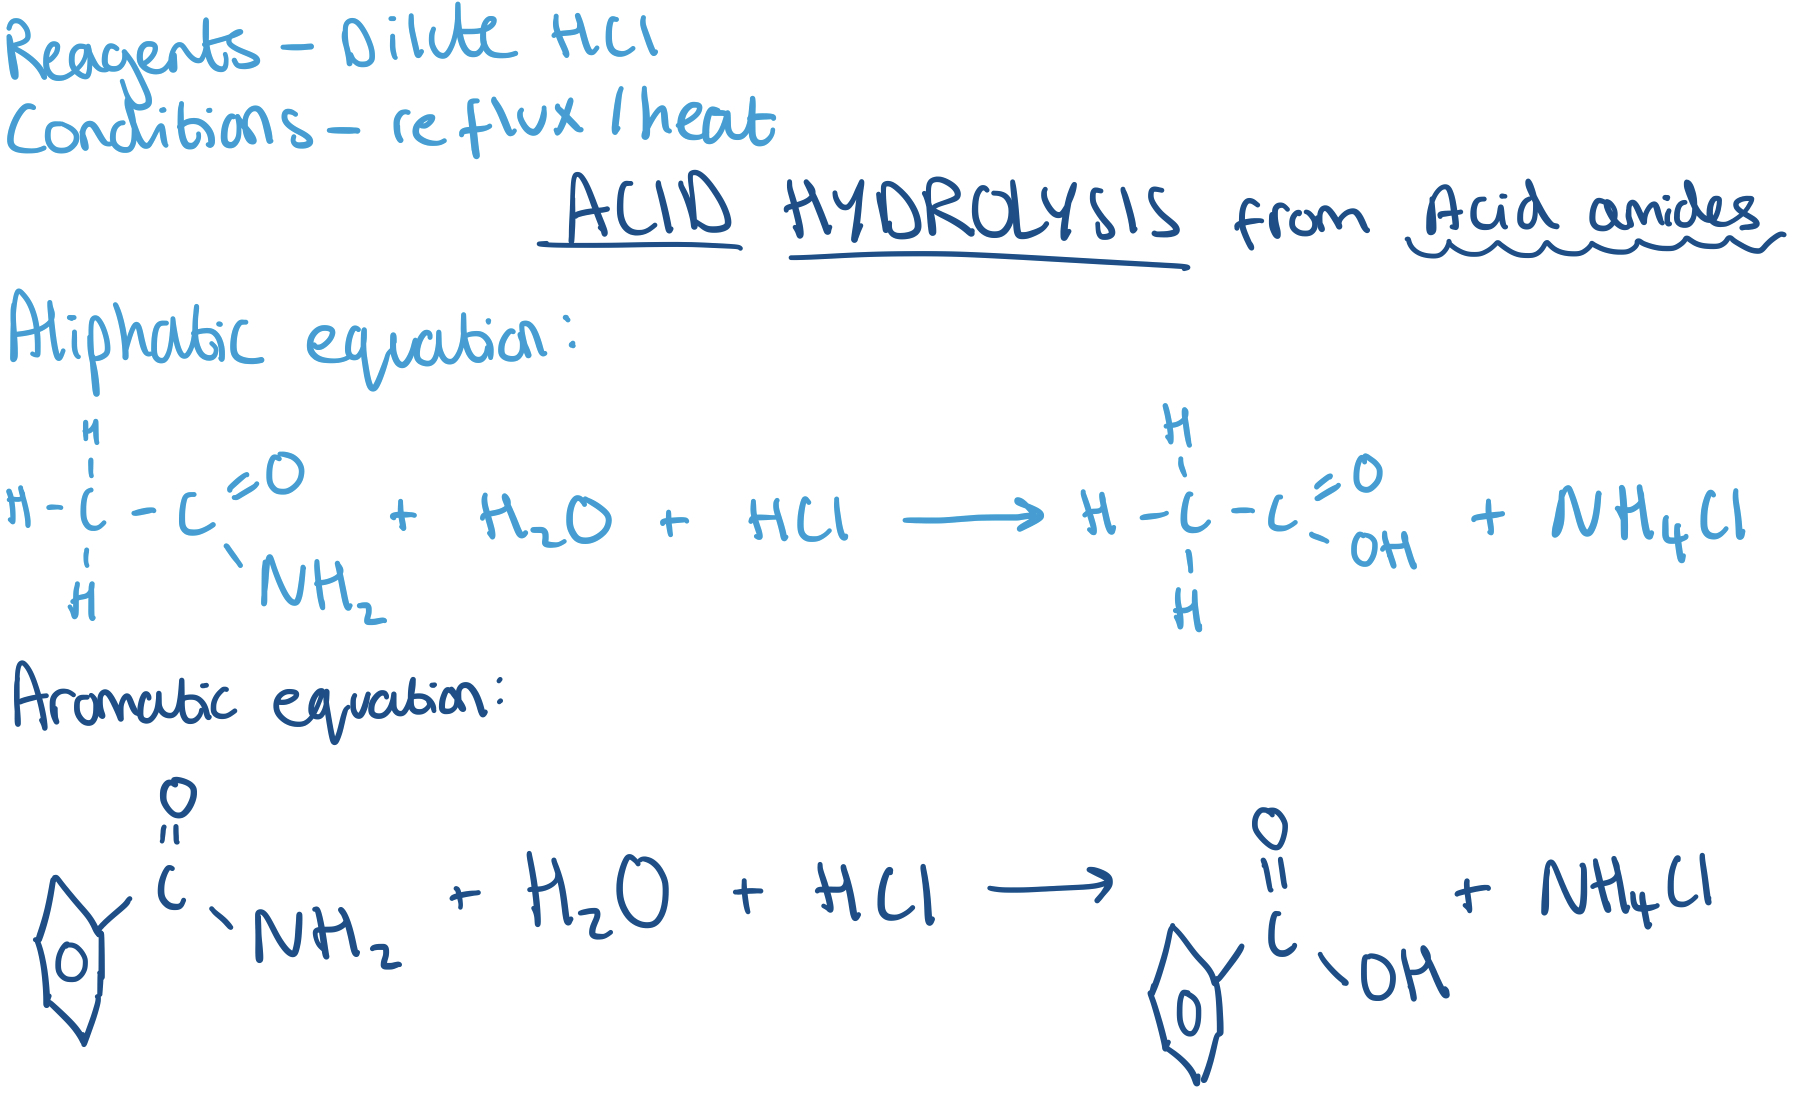 Reagents - Dilute HCl
Conditions - reflux / heat
ACID HYDROLYSIS from Acid amides
Aliphatic equation:
H
H - C - C = O + H₂O + HCl → H - C - C = O + NH₄Cl
NH₂
H
H
OH
H
Aromatic equation:
O
C
NH₂ + H₂O + HCl →
O
C
OH + NH₄Cl